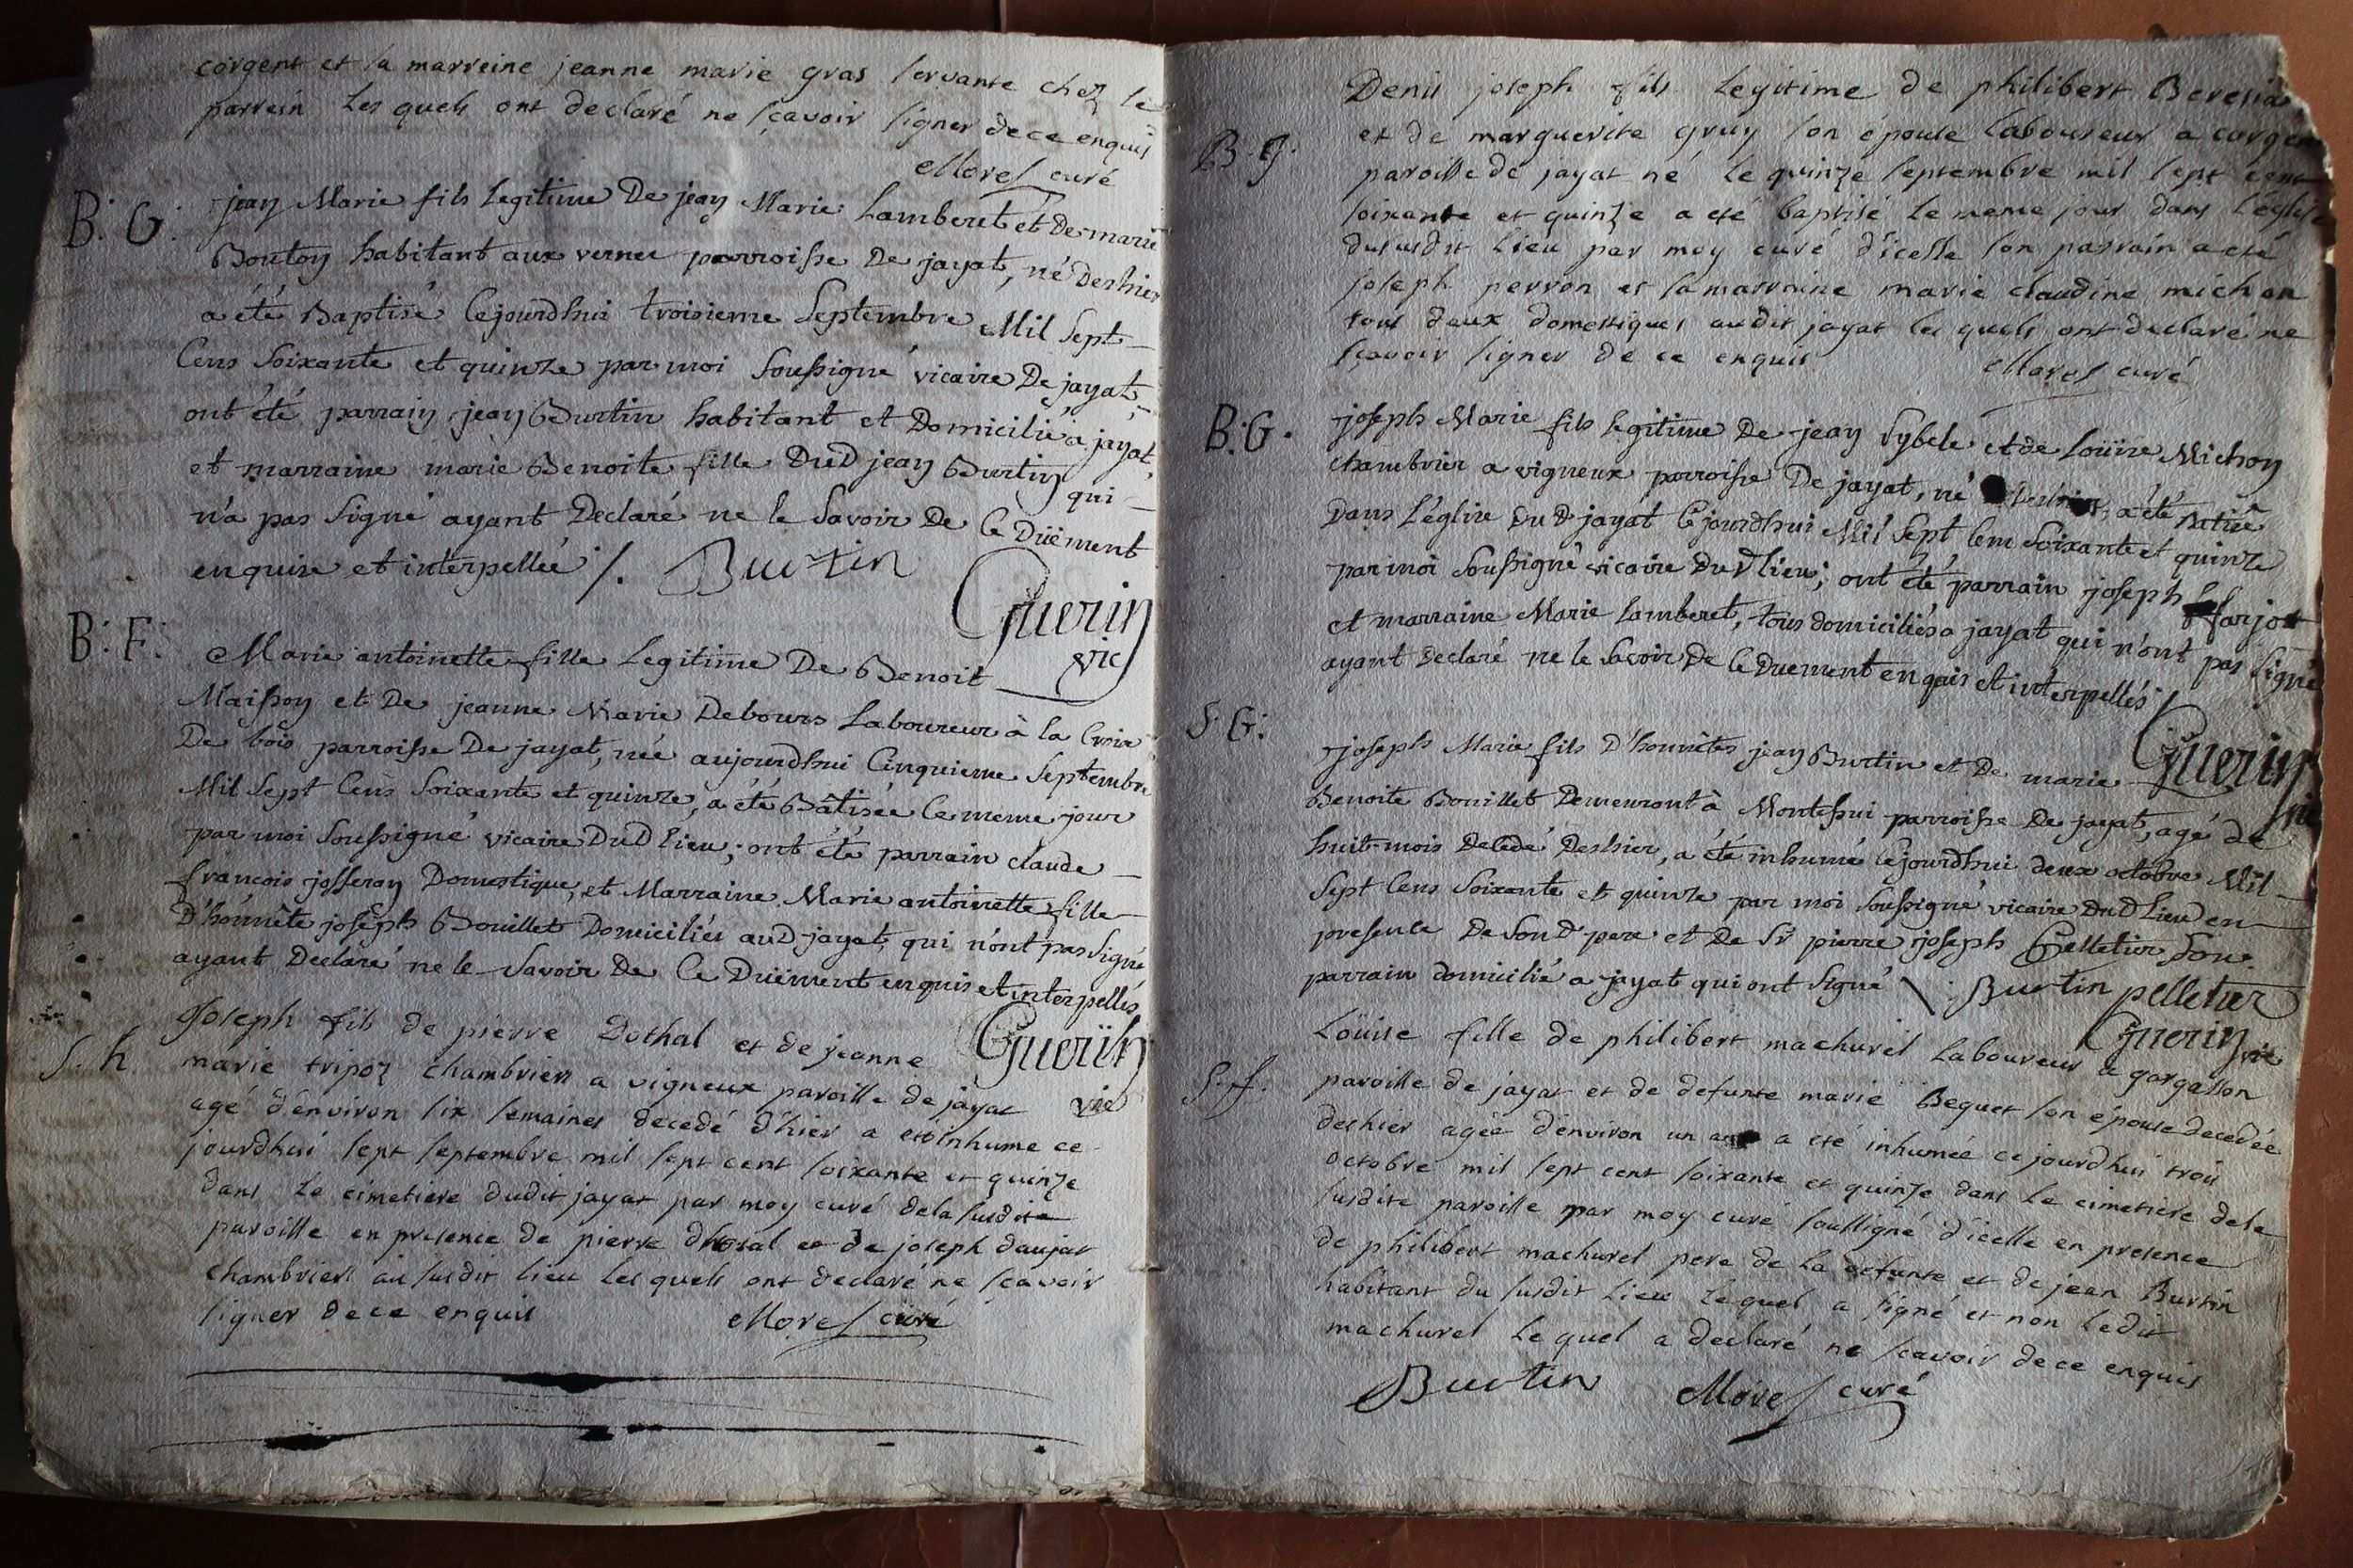 corgent et la marreine jeanne marie gras servante chez le
parrein les quels ont declaré ne sçavoir signer de ce enquis
Morel curé
B: G: jean Marie fils legitime De jean Marie Lamberet et De marie
Bouton habitant aux vernes parroisse De jayat, né Deshier
a été Baptisé Cejourdhui troisieme Septembre Mil Sept
Cens Soixante et quinze par moi Soussigné vicaire De jayat,
ont été parrain jean Burtin habitant et Domicilié a jayat,
et marraine marie Benoite fille DuD jean Burtin qui
n'a pas Signé ayant Declaré ne le Savoir De Ce Düement
enquise et interpellée /. Burtin
Guerin
vic
B: F: Marie antoinette fille Legitime De Benoit
Maisson et De jeanne Marie Debours Laboureur à la Croix
De bois parroisse De jayat, née aujourdhui Cinquieme Septembre
Mil Sept Cens Soixante et quinze, a été Bâtisée le meme jour
par moi Soussigné vicaire DuD lieu; ont été parrain claude
francois josseran Domestique, et Marraine Marie antoinette fille
D'honnête joseph Bouillet Domiciliés auD jayat, qui n'ont pas Signé
ayant Declaré ne le Savoir De Ce Düement enquis et interpellés
Guerin
vic
S. h. Joseph fils de pierre Dothal et de jeanne
marie tripoz chambriers a vigneux paroisse de jayat
agé d'environ six semaines decedé d'hier a eté inhume ce
jourdhui sept septembre mil sept cent soixante et quinze
dans le cimetiere dudit jayat par moy curé dela susdite
paroisse en presence de pierre dhotal et de joseph daujat
chambriers au susdit lieu les quels ont declaré ne scavoir
signer de ce enquis Morel curé
B. g. Denis joseph fils legitime de philibert Beresia
et de marguerite gruy son épouse laboureur a corgent
paroisse de jayat né le quinze septembre mil sept cent
soixante et quinze a eté baptisé le meme jour dans l'église
du susdit lieu par moy curé d'icelle son parrain a eté
joseph perron et la marraine marie claudine michon
tous deux domestiques audit jayat les quels ont declaré ne
sçavoir signer de ce enquis Morel curé
B: G. joseph Marie fils legitime De jean Sybele et de Loüise Michon
chambrier a vigneux parroisse De jayat, né Deshier, a été Batisé
Dans L'église DuD jayat Cejourdhui Mil Sept Cens Soixante et quinze
par moi Soussigné vicaire DuD lieu; ont été parrain joseph farjot
et marraine Marie Lamberet, tous domiciliés a jayat qui n'ont pas Signé
ayant Declaré ne le Savoir De Ce Duement enquis et interpellés /
Guerin
vic
S: G: joseph Marie fils D'honnêtes jean Burtin et De marie
Benoite Bouillet Demeurant à Montessui parroisse De jayat, agé de
huit mois Decedé Deshier, a été inhumé Cejourdhui deux octobre Mil
Sept Cens Soixante et quinze par moi Soussigné vicaire DuD Lieu en
presence De Son D pere et De Sr pierre joseph Pelletier Son
parrain domicilié a jayat qui ont Signé \. Burtin pelletier
Guerin vic
S. f. Loüise fille de philibert machurel laboureur a gargasson
paroisse de jayat et de defunte marie Beguet son épouse decedée
deshier agée d'environ un a eté inhumée ce jourdhui trois
octobre mil sept cent soixante et quinze dans le cimetiere dela
susdite paroisse par moy curé soussigné d'icelle en presence
de philibert machurel pere de la defunte et de jean Burtin
habitant du susdit lieu lequel a signé et non ledit
machurel le quel a declaré ne scavoir de ce enquis
Burtin Morel curé